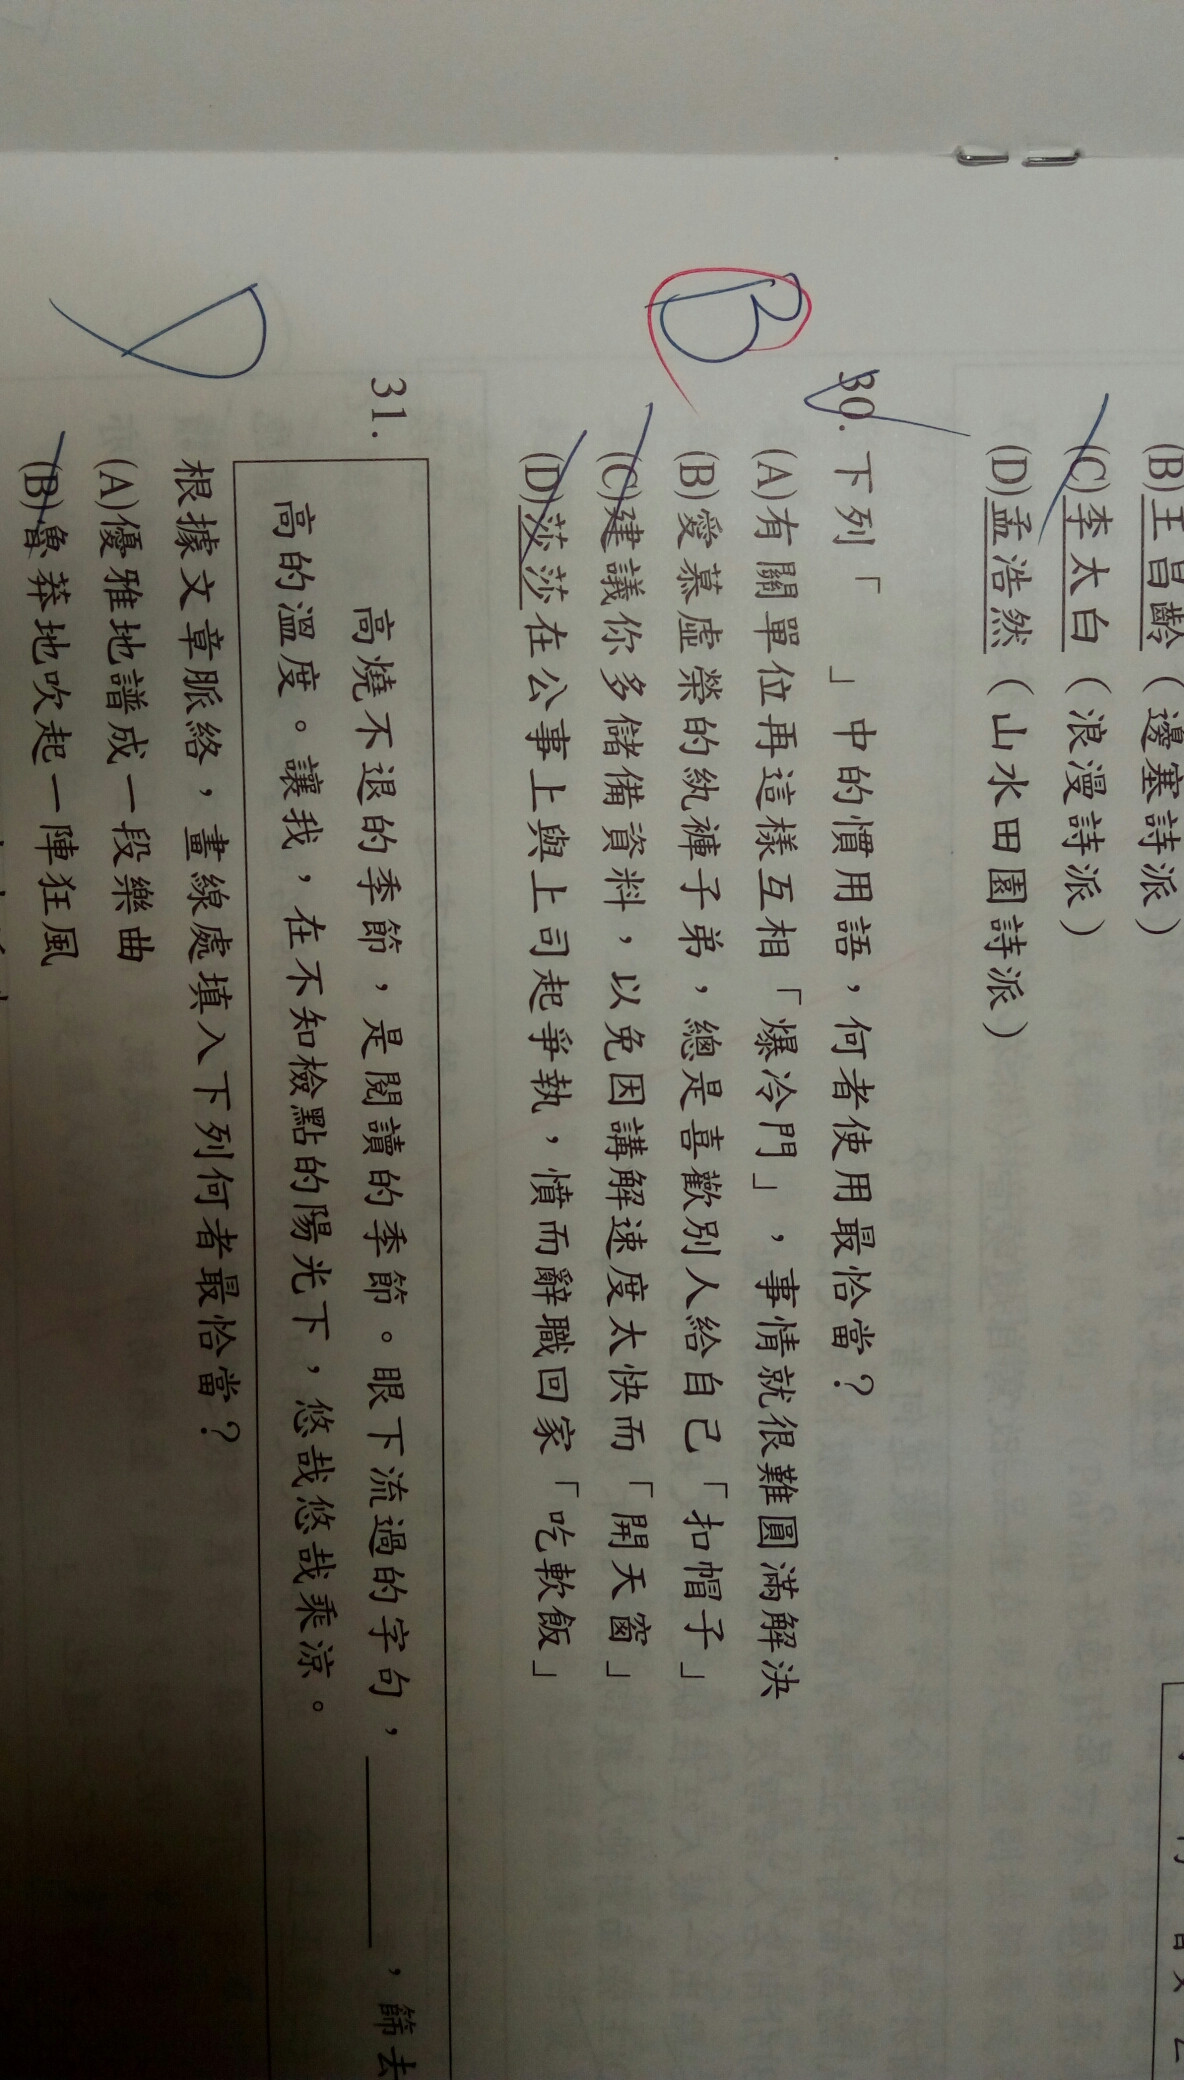 (B)王昌齡（邊塞詩派）
(C)李太白（浪漫詩派）
(D)孟浩然（山水田園詩派）
B
30.下列「　　」中的慣用語，何者使用最恰當？
(A)有關單位再這樣互相「爆冷門」，事情就很難圓滿解決
(B)愛慕虛榮的紈褲子弟，總是喜歡別人給自己「扣帽子」
(C)建議你多儲備資料，以免因講解速度太快而「開天窗」
(D)莎莎在公事上與上司起爭執，憤而辭職回家「吃軟飯」
31.
高燒不退的季節，是閱讀的季節。眼下流過的字句，＿＿＿＿，篩去
高的溫度。讓我，在不知檢點的陽光下，悠哉悠哉乘涼。
根據文章脈絡，畫線處填入下列何者最恰當？
(A)優雅地譜成一段樂曲
(B)魯莽地吹起一陣狂風